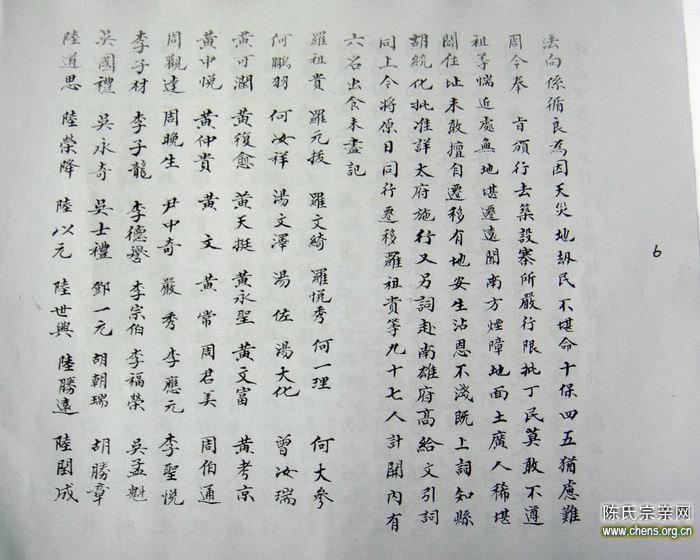 法向係循良為因天災地劫民不堪命十保四五猶慮難
周今奉旨頒行去築設寨所嚴行限批丁民莫敢不遵
祖等惴近處無地堪遷遠聞南方煙障地面土廣人稀堪
闢住址未敢擅自遷移有地安生沾恩不淺既上詞知縣
胡統化批准詳太府施行又另詞赴南雄府高給文引詞
同上今將原日同行遷移羅祖貴等九十七人計開內有
六名出食未盡記
羅祖貴 羅元拔 羅文綺 羅悅秀 何一理 何大參
何鵬羽 何汝祥 湯文澤 湯佐 湯大化 曾汝瑞
黃可潤 黃復愈 黃天挺 黃永聖 黃文富 黃考京
黃中悅 黃仲貴 黃文 黃常 周君美 周伯通
周觀達 周晚生 尹中奇 嚴秀 李應元 李聖悅
李子材 李子龍 李德譽 李宗伯 李福榮 吳孟魁
吳國禮 吳永奇 吳士禮 鄧一元 胡朝瑞 胡勝章
陸道思 陸榮降 陸以元 陸世興 陸勝遠 陸閏成
6
陈氏宗亲网
www.chens.org.cn